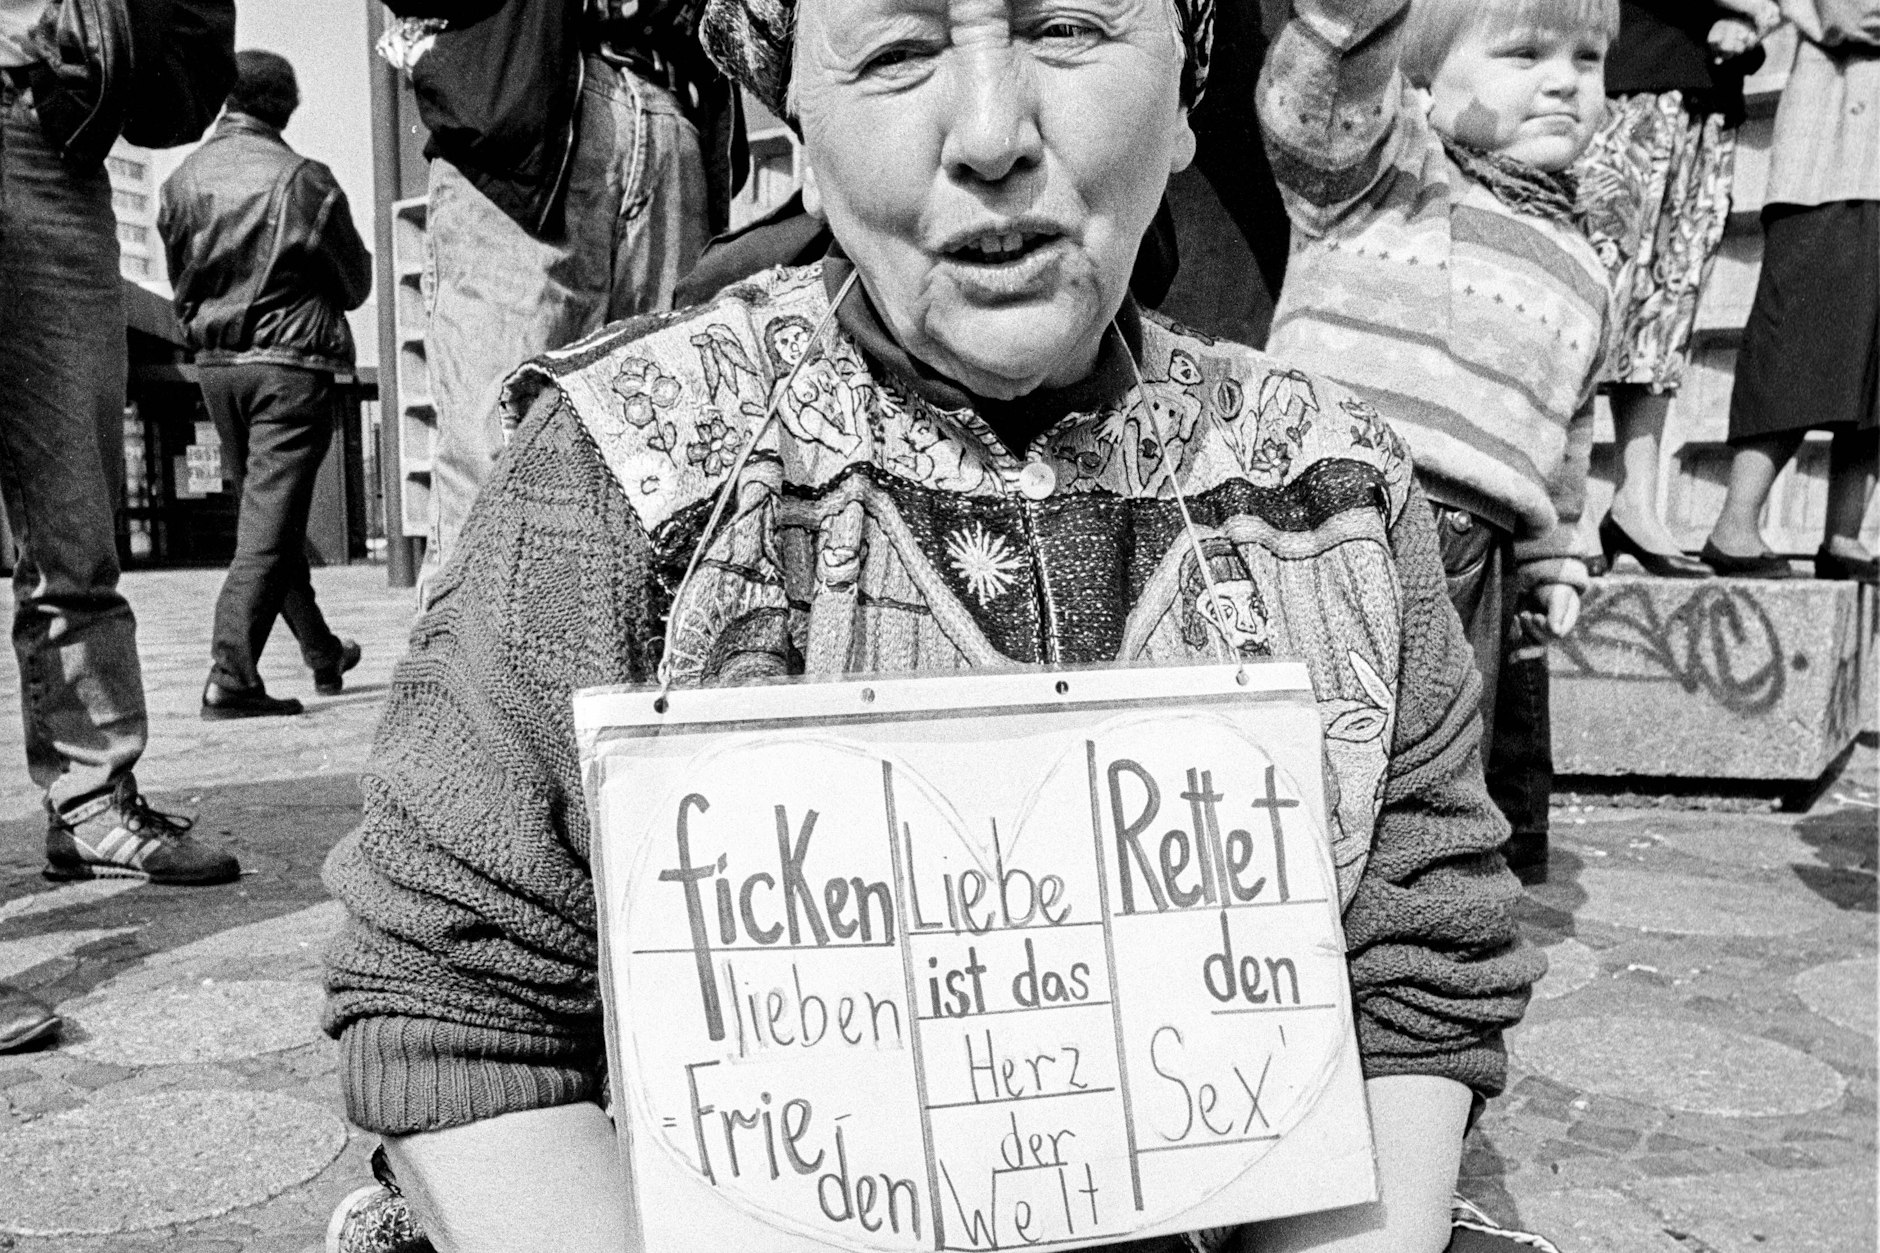 ficken
lieben
= Frie-
den
Liebe
ist das
Herz
der
Welt
Rettet
den
Sex!